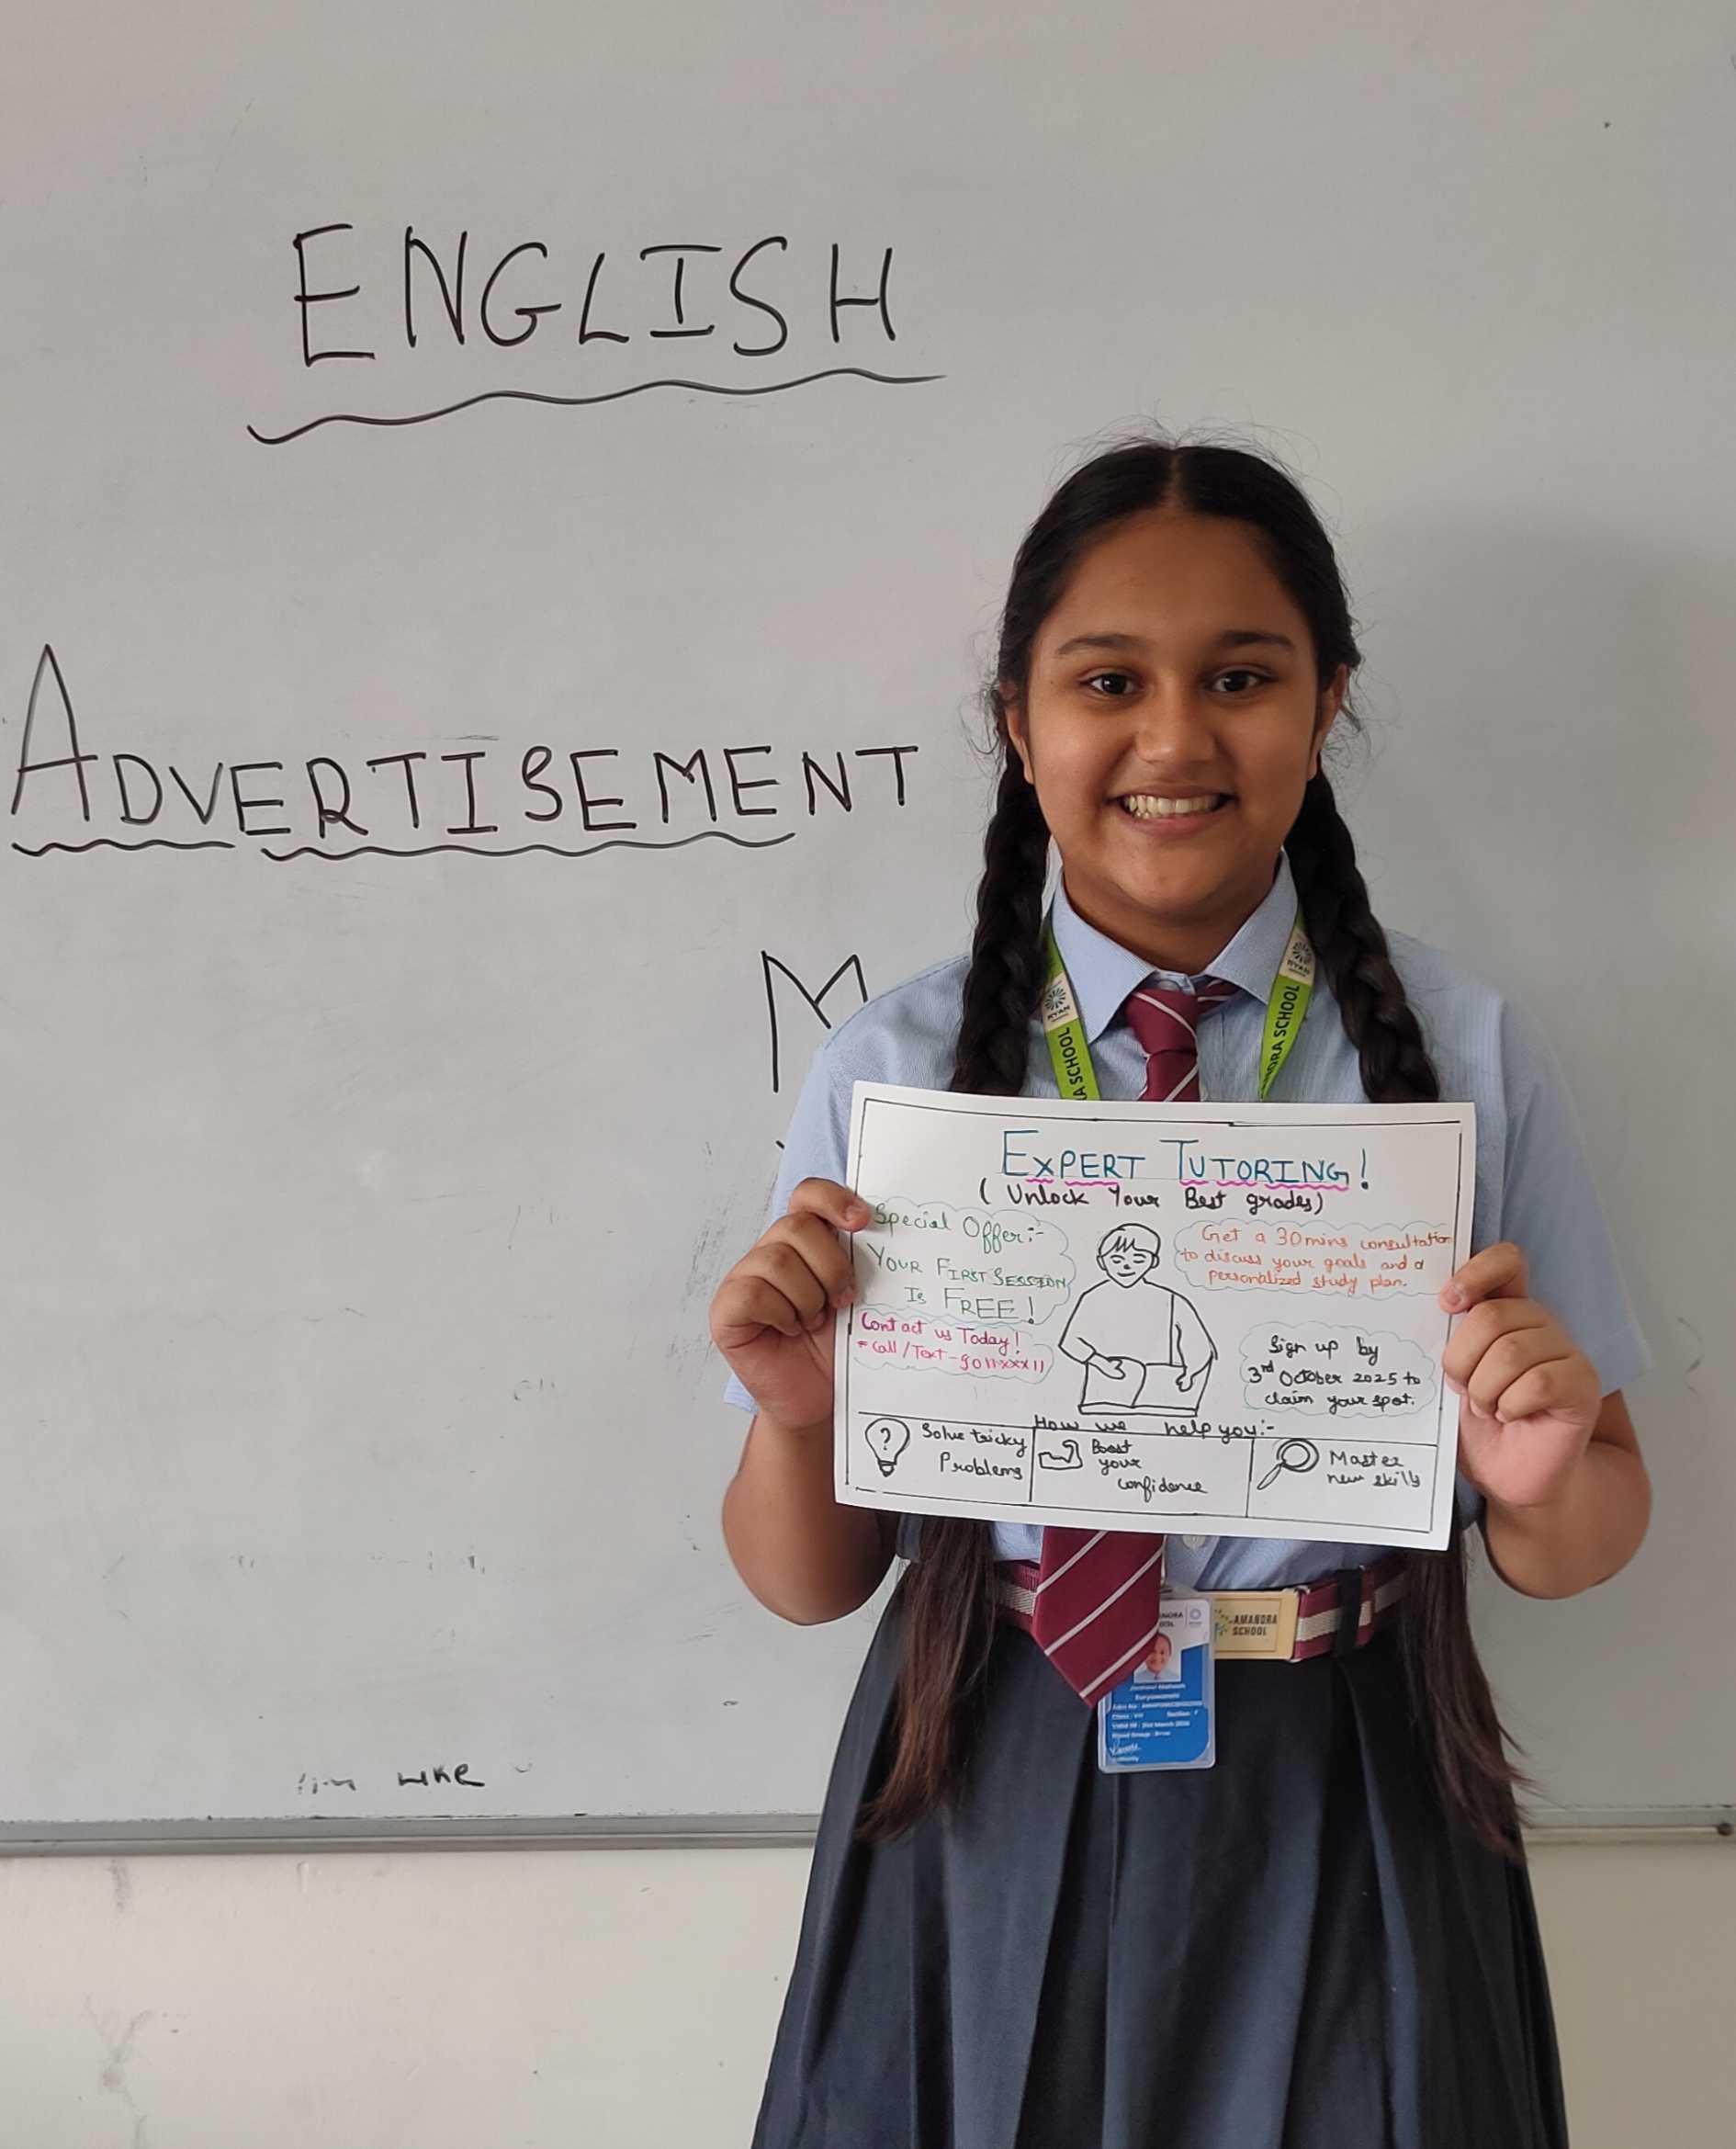 ENGLISH
ADVERTISEMENT
M
RYAN
RYAN
A SCHOOL
NDRA SCHOOL
EXPERT TUTORING!
( Unlock Your Best grades)
Special Offer:-
YOUR FIRST SESSION
Is FREE!
Contact us Today!
Call/Text-9011xxx11
Get a 30mins consultation
to discuss your goals and a
personalized study plan.
Sign up by
3rd October 2025 to
claim your spot.
How we help you:-
Solve tricky
Problems
Boost
your
confidence
Master
new skills
AMANORA
SCHOOL
like